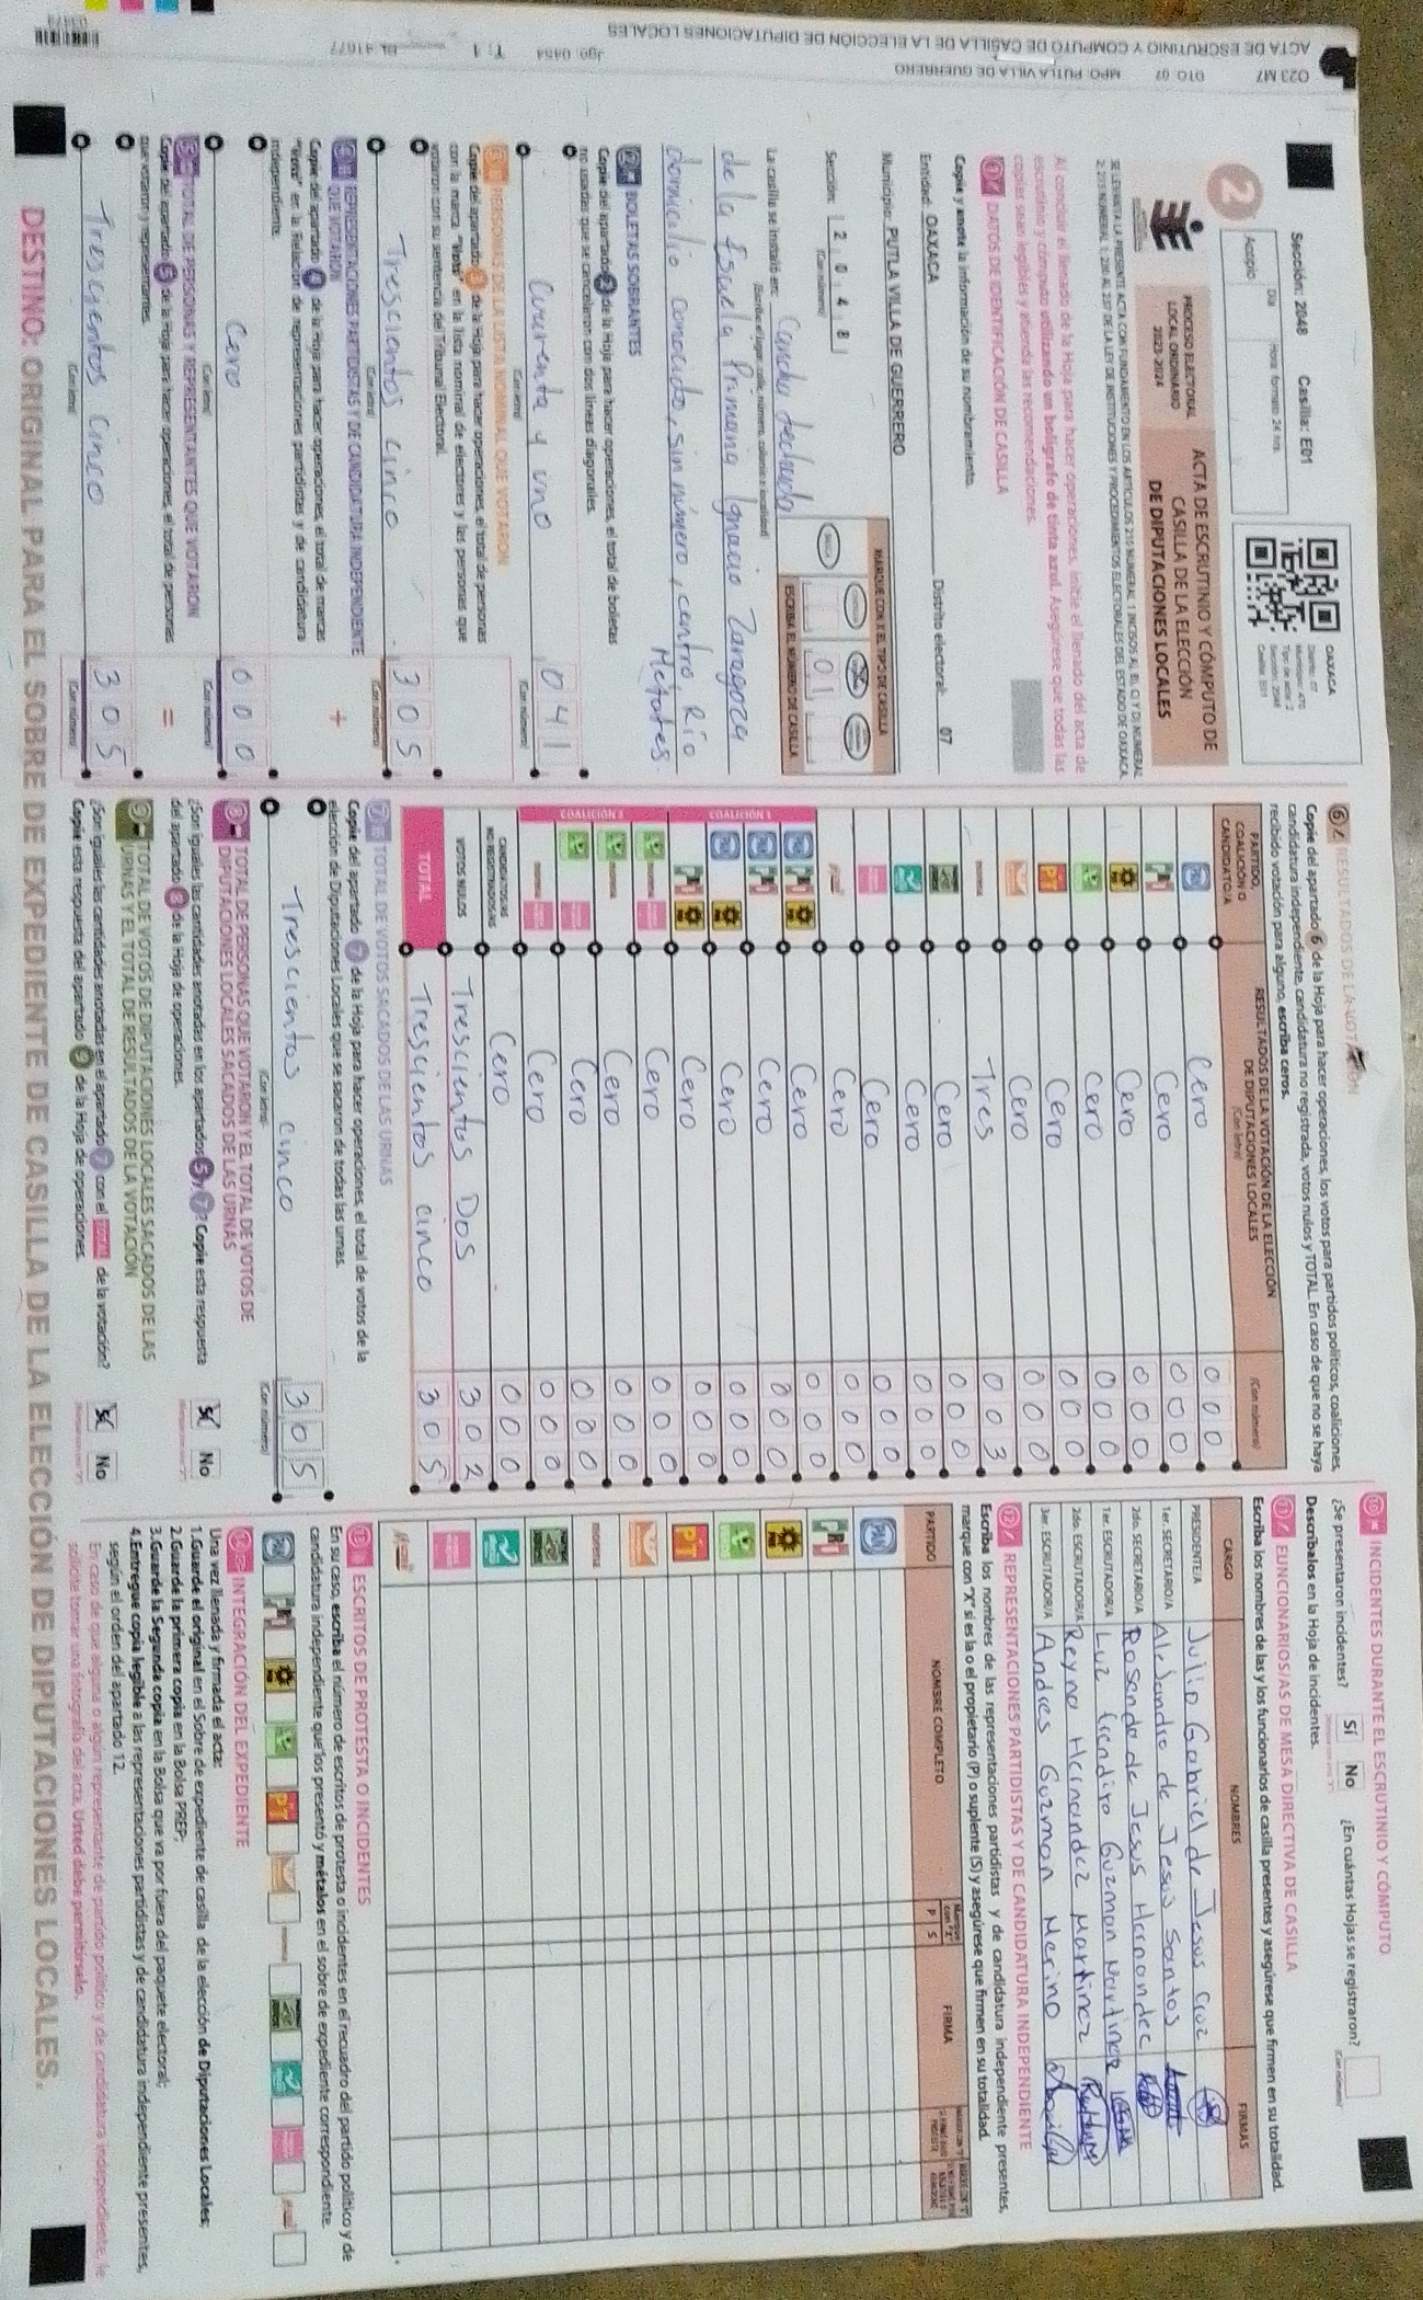 O23 M7 DTO 07 MPO: PUTLA VILLA DE GUERRERO
ACTA DE ESCRUTINIO Y CÓMPUTO DE CASILLA DE LA ELECCIÓN DE DIPUTACIONES LOCALES
Jgo: 0454 T: 1 BL 41677
Sección: 2048 Casilla: E01
Acopio
Día
Hora: formato 24 hrs.
OAXACA
2
PROCESO ELECTORAL
LOCAL ORDINARIO
2023-2024
ACTA DE ESCRUTINIO Y CÓMPUTO DE
CASILLA DE LA ELECCIÓN
DE DIPUTACIONES LOCALES
Al concluir el llenado de la Hoja para hacer operaciones, inicie el llenado del acta de
escrutinio y cómputo utilizando un bolígrafo de tinta azul. Asegúrese que todas las
copias sean legibles y atienda las recomendaciones.
1 DATOS DE IDENTIFICACIÓN DE CASILLA
Copie y anote la información de su nombramiento.
Entidad: OAXACA Distrito electoral: 07
Municipio: PUTLA VILLA DE GUERRERO
Sección: 2 0 4 8
(Con número)
MARQUE CON X EL TIPO DE CASILLA
ESCRIBA EL NÚMERO DE CASILLA
0 1
La casilla se instaló en: Cancha techada
(Escriba el lugar: calle, número, colonia o localidad)
de la Escuela Primaria Ignacio Zaragoza
domicilio conocido, sin número, centro, Río
Metates.
2 BOLETAS SOBRANTES
Copie del apartado 2 de la Hoja para hacer operaciones, el total de boletas
no usadas que se cancelaron con dos líneas diagonales.
Cuarenta y uno 0 4 1
(Con letra) (Con número)
3 PERSONAS DE LA LISTA NOMINAL QUE VOTARON
Copie del apartado 3 de la Hoja para hacer operaciones, el total de personas
con la marca "Votó" en la lista nominal de electores y las personas que
votaron con su sentencia del Tribunal Electoral.
Trescientos cinco 3 0 5
(Con letra) (Con número)
4 REPRESENTACIONES PARTIDISTAS Y DE CANDIDATURA INDEPENDIENTE
QUE VOTARON
Copie del apartado 4 de la Hoja para hacer operaciones, el total de marcas
"Votó" en la Relación de representaciones partidistas y de candidatura
independiente.
+
Cero 0 0 0
(Con letra) (Con número)
5 TOTAL DE PERSONAS Y REPRESENTANTES QUE VOTARON
Copie del apartado 5 de la Hoja para hacer operaciones, el total de personas
que votaron y representantes.
=
Trescientos Cinco 3 0 5
(Con letra) (Con número)
6 RESULTADOS DE LA VOTACIÓN
Copie del apartado 6 de la Hoja para hacer operaciones, los votos para partidos políticos, coaliciones,
candidatura independiente, candidatura no registrada, votos nulos y TOTAL. En caso de que no se haya
recibido votación para alguno, escriba ceros.
PARTIDO,
COALICIÓN O
CANDIDATO/A
RESULTADOS DE LA VOTACIÓN DE LA ELECCIÓN
DE DIPUTACIONES LOCALES
(Con letra)
(Con número)
PAN Cero 0 0 0
PRI Cero 0 0 0
PRD Cero 0 0 0
Cero 0 0 0
PT Cero 0 0 0
Cero 0 0 0
morena Tres 0 0 3
Cero 0 0 0
Cero 0 0 0
Cero 0 0 0
Cero 0 0 0
COALICIÓN 1
PAN PRI PRD Cero 0 0 0
PAN PRI Cero 0 0 0
PAN PRD Cero 0 0 0
PRI PRD Cero 0 0 0
COALICIÓN 2
Cero 0 0 0
Cero 0 0 0
Cero 0 0 0
Cero 0 0 0
CANDIDATOS/AS
NO REGISTRADOS/AS Cero 0 0 0
VOTOS NULOS Trescientos Dos 3 0 2
TOTAL Trescientos cinco 3 0 5
7 TOTAL DE VOTOS SACADOS DE LAS URNAS
Copie del apartado 7 de la Hoja para hacer operaciones, el total de votos de la
elección de Diputaciones Locales que se sacaron de todas las urnas.
Trescientos cinco 3 0 5
(Con letra) (Con número)
8 TOTAL DE PERSONAS QUE VOTARON Y EL TOTAL DE VOTOS DE
DIPUTACIONES LOCALES SACADOS DE LAS URNAS
¿Son iguales las cantidades anotadas en los apartados 5 y 7? Copie esta respuesta
del apartado 8 de la Hoja de operaciones.
Sí No
9 TOTAL DE VOTOS DE DIPUTACIONES LOCALES SACADOS DE LAS
URNAS Y EL TOTAL DE RESULTADOS DE LA VOTACIÓN
¿Son iguales las cantidades anotadas en el apartado 7 con el TOTAL de la votación?
Copie esta respuesta del apartado 9 de la Hoja de operaciones.
Sí No
10 INCIDENTES DURANTE EL ESCRUTINIO Y CÓMPUTO
¿Se presentaron incidentes? Sí No ¿En cuántas Hojas se registraron?
(Con número)
Descríbalos en la Hoja de incidentes.
11 FUNCIONARIOS/AS DE MESA DIRECTIVA DE CASILLA
Escriba los nombres de las y los funcionarios de casilla presentes y asegúrese que firmen en su totalidad.
CARGO NOMBRES FIRMAS
PRESIDENTE/A Julio Gabriel de Jesus Cruz
1er. SECRETARIO/A Alejandro de Jesus Santos
2do. SECRETARIO/A Rosendo de Jesus Hernandez
1er. ESCRUTADOR/A Luz Guzman Martinez
2do. ESCRUTADOR/A Reyna Hernandez Martinez
3er. ESCRUTADOR/A Andres Guzman Merino
12 REPRESENTACIONES PARTIDISTAS Y DE CANDIDATURA INDEPENDIENTE
Escriba los nombres de las representaciones partidistas y de candidatura independiente presentes,
marque con "X" si es la o el propietario (P) o suplente (S) y asegúrese que firmen en su totalidad.
PARTIDO NOMBRE COMPLETO P S FIRMA
PAN
PRI
PRD
PT
morena
13 ESCRITOS DE PROTESTA O INCIDENTES
En su caso, escriba el número de escritos de protesta o incidentes en el recuadro del partido político y de
candidatura independiente que los presentó y métalos en el sobre de expediente correspondiente.
PAN PRI PRD PT
14 INTEGRACIÓN DEL EXPEDIENTE
Una vez llenada y firmada el acta:
1.Guarde el original en el Sobre de expediente de casilla de la elección de Diputaciones Locales;
2.Guarde la primera copia en la Bolsa PREP;
3.Guarde la Segunda copia en la Bolsa que va por fuera del paquete electoral;
4.Entregue copia legible a las representaciones partidistas y de candidatura independiente presentes,
según el orden del apartado 12.
En caso de que alguna o algún representante de partido político y de candidatura independiente, le
solicite tomar una fotografía del acta. Usted debe permitírselo.
DESTINO: ORIGINAL PARA EL SOBRE DE EXPEDIENTE DE CASILLA DE LA ELECCIÓN DE DIPUTACIONES LOCALES.